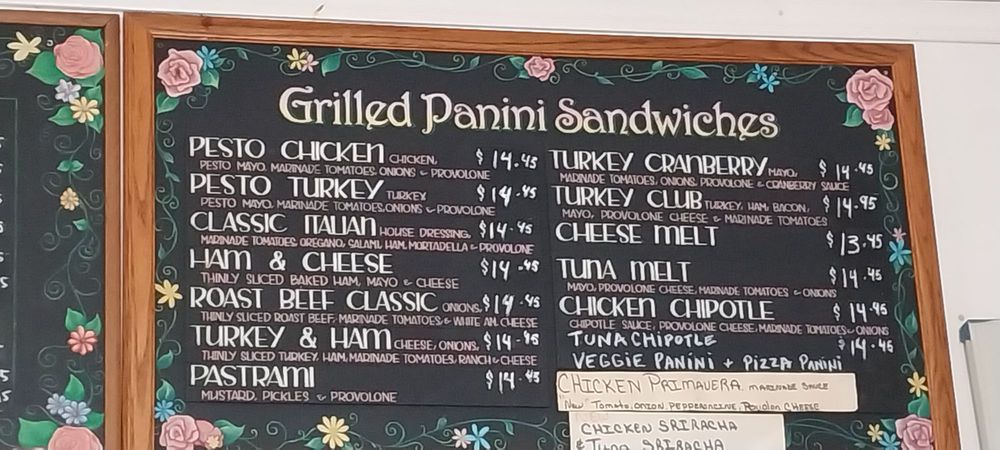 Grilled Panini Sandwiches
PESTO CHICKEN CHICKEN, $14.45
PESTO MAYO, MARINADE TOMATOES, ONIONS & PROVOLONE
PESTO TURKEY TURKEY $14.45
PESTO MAYO, MARINADE TOMATOES, ONIONS & PROVOLONE
CLASSIC ITALIAN HOUSE DRESSING, $14.45
MARINADE TOMATOES, OREGANO, SALAMI, HAM, MORTADELLA & PROVOLONE
HAM & CHEESE $14.45
THINLY SLICED BAKED HAM, MAYO & CHEESE
ROAST BEEF CLASSIC ONIONS, $14.45
THINLY SLICED ROAST BEEF, MARINADE TOMATOES & WHITE AM. CHEESE
TURKEY & HAM CHEESE, ONIONS, $14.45
THINLY SLICED TURKEY, HAM, MARINADE TOMATOES, RANCH & CHEESE
PASTRAMI $14.45
MUSTARD, PICKLES & PROVOLONE
TURKEY CRANBERRY MAYO, $14.45
MARINADE TOMATOES, ONIONS, PROVOLONE & CRANBERRY SAUCE
TURKEY CLUB TURKEY, HAM, BACON, $14.95
MAYO, PROVOLONE CHEESE & MARINADE TOMATOES
CHEESE MELT $13.45
TUNA MELT $14.45
MAYO, PROVOLONE CHEESE, MARINADE TOMATOES & ONIONS
CHICKEN CHIPOTLE $14.45
CHIPOTLE SAUCE, PROVOLONE CHEESE, MARINADE TOMATOES & ONIONS
TUNA CHIPOTLE $14.45
VEGGIE PANINI + PIZZA PANINI
CHICKEN PRIMAVERA, MARINADE SAUCE
"New" Tomato, ONION, PEPPERONCINE, Povolon CHEESE
CHICKEN SRIRACHA
& TUNA SRIRACHA